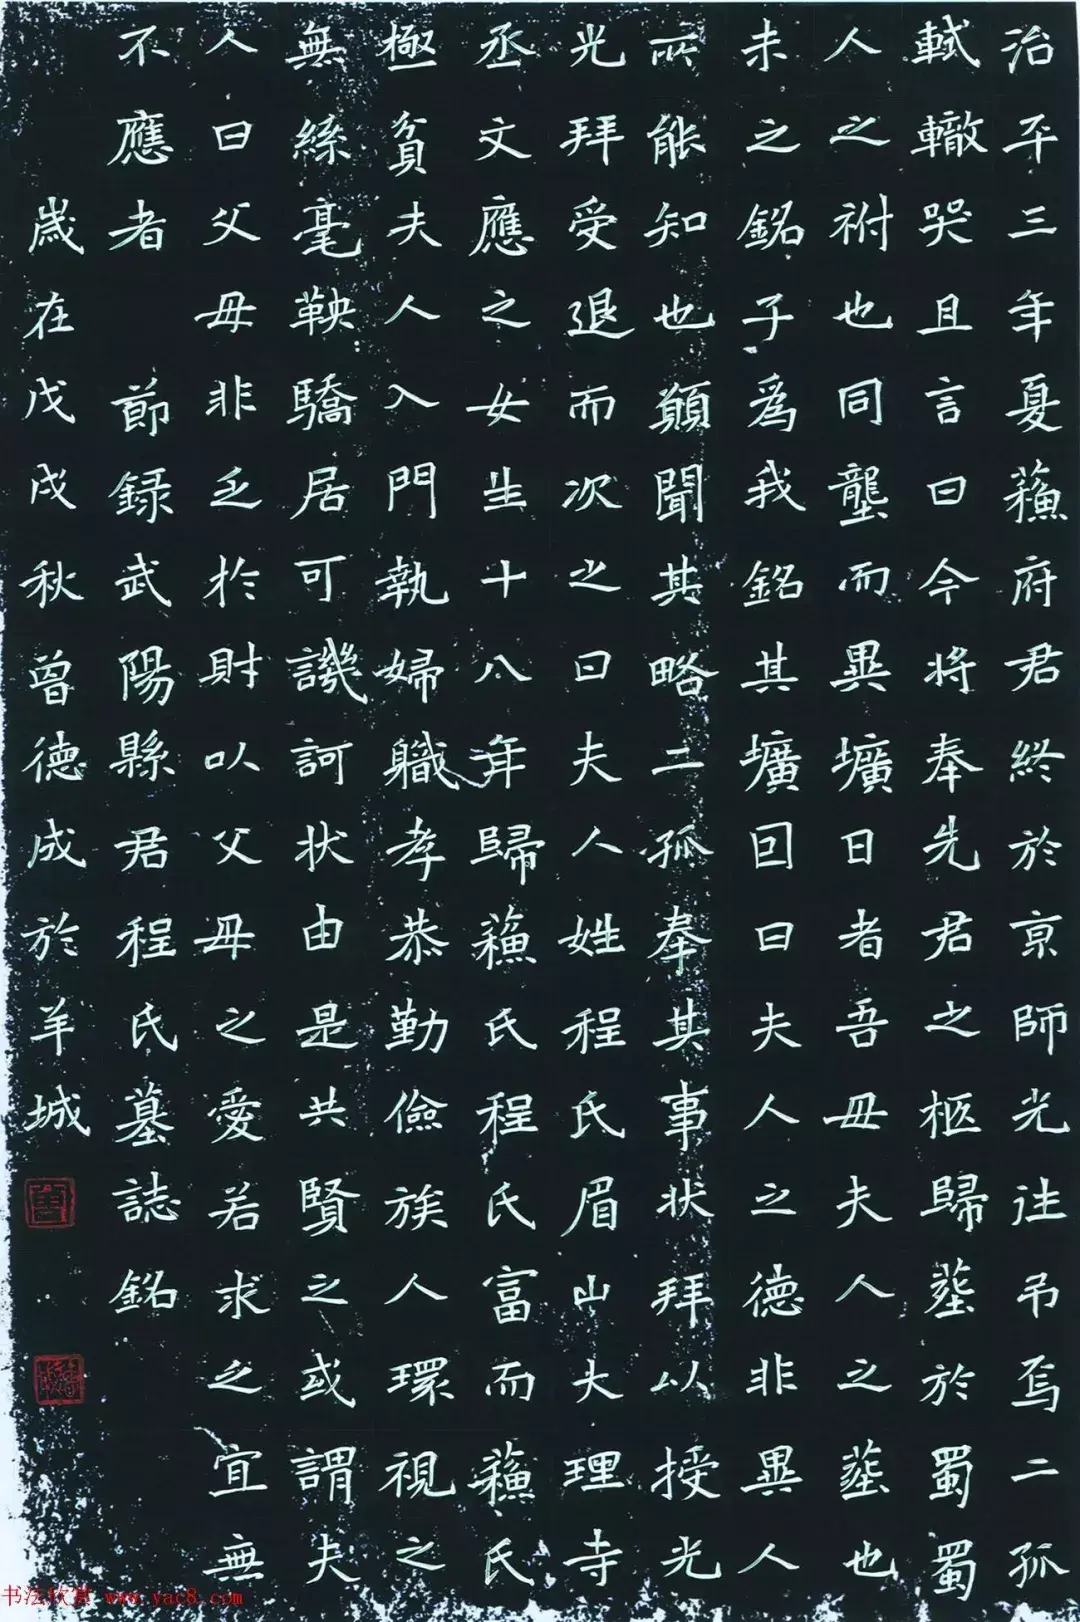 治平三年夏蘓府君終於京師光往吊焉二孤
軾轍哭且言曰今将奉先君之柩歸塟於蜀蜀
人之祔也同壟而異壙日者吾母夫人之塟也
未之銘子爲我銘其壙回曰夫人之德非異人
所能知也願聞其略二孤奉其事状拜以授光
光拜受退而次之曰夫人姓程氏眉山大理寺
丞文應之女生十八年歸蘓氏程氏富而蘓氏
極貧夫人入門執婦職孝恭勤儉族人環視之
無絲毫鞅驕居可譏訶状由是共賢之或謂夫
人曰父母非乏於財以父母之愛若求之宜無
不應者 節録武陽縣君程氏墓誌銘
歲在戊戌秋曾德成於羊城
书法欣赏 www.yac8.com